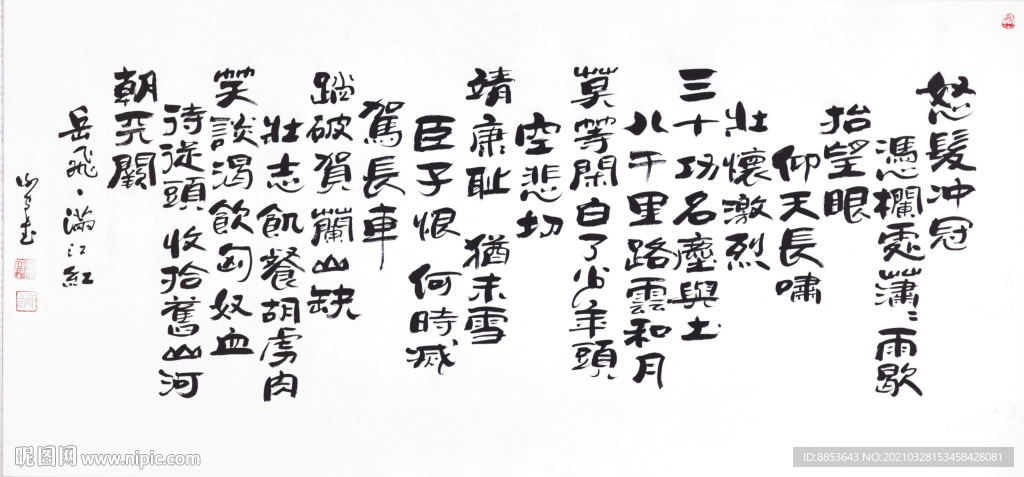 怒髮冲冠
憑欄處瀟〻雨歇
抬望眼
仰天長嘯
壯懷激烈
三十功名塵與土
八千里路雲和月
莫等閑白了少年頭
空悲切
靖康耻 猶未雪
臣子恨 何時滅
駕長車
踏破賀蘭山缺
壯志飢餐胡虜肉
笑談渴飲匈奴血
待從頭收拾舊山河
朝天闕
岳飛、滿江紅
昵图网 www.nipic.com
ID:8853643 NO:20210328153458428081